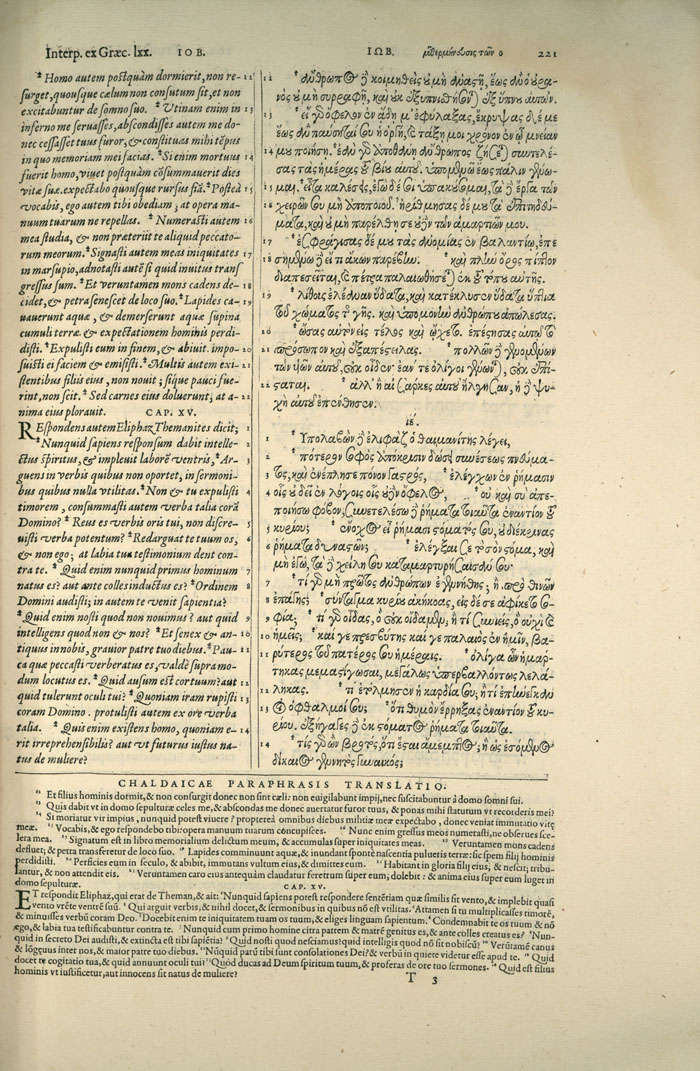 Interp. ex Græc. lxx. IOB.
* Homo autem postquàm dormierit, non re- 12
surget, quousque cælum non consutum sit, et non
excitabuntur de somno suo. * Vtinam enim in 13
inferno me seruasses, abscondisses autem me do-
nec cessasset tuus furor, & constituas mihi tẽpus
in quo memoriam mei facias. * Si enim mortuus 14
fuerit homo, viuet postquàm cõsummauerit dies
vitæ suæ. expectabo quousque rursus fiã. * Posteà 15
vocabis, ego autem tibi obediam; at opera ma-
nuum tuarum ne repellas. * Numerasti autem 16
mea studia, & non præteriit te aliquid peccato-
rum meorum. * Signasti autem meas iniquitates 17
in marsupio, adnotasti autẽ si quid inuitus trans
gressus sum. * Et veruntamen mons cadens de- 18
cidet, & petra senescet de loco suo. * Lapides ca- 19
uauerunt aquæ, & demerserunt aquæ supina
cumuli terræ. & expectationem hominis perdi-
disti. * Expulisti eum in finem, & abiuit. impo- 20
suisti ei faciem & emisisti. * Multis autem exi- 21
stentibus filiis eius, non nouit; sique pauci fue-
rint, non scit. * Sed carnes eius doluerunt; at a- 22
nima eius plorauit. CAP. XV.
REspondens autem Eliphaz Themanites dicit; 1
* Nunquid sapiens responsum dabit intelle- 2
ctus spiritus, & impleuit laborẽ ventris, * Ar- 3
guens in verbis quibus non oportet, in sermoni-
bus quibus nulla vtilitas. * Non & tu expulisti 4
timorem, consummasti autem verba talia corã
Domino? * Reus es verbis oris tui, non discre- 5
uisti verba potentum? * Redarguat te tuum os, 6
& non ego; at labia tua testimonium dent con-
tra te. * Quid enim nunquid primus hominum 7
natus es? aut ante colles inductus es? * Ordinem 8
Domini audisti; in autem te venit sapientia?
* Quid enim nosti quod non nouimus? aut quid 9
intelligens quod non & nos? * Et senex & an- 10
tiquus innobis, grauior patre tuo diebus. * Pau- 11
ca que peccasti verberatus es, valdè supra mo-
dum locutus es. * Quid ausum est cor tuum? aut 12
quid tulerunt oculi tui? * Quoniam iram rupisti 13
coram Domino. protulisti autem ex ore verba
talia. * Quis enim existens homo, quoniam e- 14
rit irreprehensibilis? aut vt futurus iustus na-
tus de muliere?
ΙΩΒ. μεθερμήνευσις τῶν ο 221
12 * ἄνθρωπος ἢ κοιμηθεὶς οὐ μὴ ἀναστῇ, ἕως ἂν ὁ οὐρα-
νὸς οὐ μὴ συρραφῇ, καὶ οὐκ ἐξυπνισθήσονται ἐξ ὕπνου αὐτῶν.
13 * εἰ γὰρ ὄφελον ἐν ᾅδῃ μ᾽ ἐφύλαξας, ἔκρυψας δέ με
ἕως ἂν παύσηταί σου ἡ ὀργὴ, καὶ τάξῃ μοι χρόνον ἐν ᾧ μνείαν
14 μου ποιήσῃ. * ἐὰν γὰρ ἀποθάνῃ ἄνθρωπος ζήσεται συντελέ-
σας τὰς ἡμέρας τοῦ βίου αὐτοῦ. ὑπομενῶ ἕως πάλιν γένω-
15 μαι, * εἶτα καλέσῃς, ἐγὼ δέ σοι ὑπακούσομαι, τὰ δὲ ἔργα τῶν
16 χειρῶν σου μὴ ἀποποιοῦ. * ἠρίθμησας δέ μου τὰ ἐπιτηδεύ-
ματα, καὶ οὐ μὴ παρέλθῃ σε οὐδὲν τῶν ἁμαρτιῶν μου.
17 * ἐσφράγισας δέ μου τὰς ἀνομίας ἐν βαλαντίῳ, ἐπε
18 σημήνω δὲ εἴ τι ἄκων παρέβην. * καὶ πλὴν ὄρος πίπτον
διαπεσεῖται, καὶ πέτρα παλαιωθήσεται ἐκ τοῦ τόπου αὐτῆς.
19 * λίθους ἐλέαναν ὕδατα, καὶ κατέκλυσεν ὕδατα ὕπτια
τοῦ χώματος τῆς γῆς. καὶ ὑπομονὴν ἀνθρώπου ἀπώλεσας.
20 * ὦσας αὐτὸν εἰς τέλος καὶ ᾤχετο. ἐπέστησας αὐτῷ τὸ
21 πρόσωπον καὶ ἐξαπέστειλας. * πολλῶν δὲ γενομένων
τῶν υἱῶν αὐτοῦ, οὐκ οἶδεν· ἐάν τε ὀλίγοι γένωνται, οὐκ ἐπί-
22 σταται. * ἀλλ᾽ ἢ αἱ σάρκες αὐτοῦ ἤλγησαν, ἡ δὲ ψυ-
χὴ αὐτοῦ ἐπένθησεν.
ιέ.
1 * Ὑπολαβὼν δὲ ἐλιφὰζ ὁ θαιμανίτης λέγει,
2 * πότερον σοφὸς ἀπόκρισιν δώσει συνέσεως πνεῦμα-
3 τος, καὶ ἐνέπλησε πόνον γαστρὸς, * ἐλέγχων ἐν ῥήμασιν
4 οἷς οὐ δεῖ ἐν λόγοις οἷς οὐδὲν ὄφελος, * οὐ καὶ σὺ ἀπε-
ποιήσω φόβον, συνετελέσω δὲ ῥήματα τοιαῦτα ἐναντίον τοῦ
5 κυρίου; * ἔνοχος εἶ ῥήμασι στόματός σου, οὐ διέκρινας
6 ῥήματα δυναστῶν; * ἐλέγξαι σε τὸ σὸν στόμα, καὶ
μὴ ἐγώ, τὰ δὲ χείλη σου καταμαρτυρήσαισάν σου.
7 * τί γὰρ μὴ πρῶτος ἀνθρώπων ἐγεννήθης; ἢ πρὸ θινῶν
8 ἐπάγης; * σύνταγμα κυρίου ἀκήκοας, εἰς δέ σε ἀφίκετο σο-
9 φία; * τί γὰρ οἶδας, ὃ οὐκ οἴδαμεν, ἢ τί συνιεῖς, ὃ οὐχὶ καὶ
10 ἡμεῖς; * καί γε πρεσβύτης καί γε παλαιὸς ἐν ἡμῖν, βα-
11 ρύτερος τοῦ πατρός σου ἡμέραις. * ὀλίγα ὧν ἡμάρ-
τηκας μεμαστίγωσαι, μεγάλως ὑπερβαλλόντως λελά-
12 ληκας. * τί ἐτόλμησεν ἡ καρδία σου; ἢ τί ἐπήνεγκαν
13 οἱ ὀφθαλμοί σου; * ὅτι θυμὸν ἔρρηξας ἐναντίον τοῦ κυ-
ρίου. ἐξήγαγες δὲ ἐκ στόματος ῥήματα τοιαῦτα.
14 * τίς γὰρ ὢν βροτὸς, ὅτι ἔσται ἄμεμπτος; ἢ ὡς ἐσόμενος
δίκαιος γεννητὸς γυναικός;
CHALDAICAE PARAPHRASIS TRANSLATIO.
12 Et filius hominis dormit, & non consurgit donec non sint cæli: non euigilabunt impij, nec suscitabuntur à domo somni sui.
13 Quis dabit vt in domo sepulturæ celes me, & abscondas me donec auertatur furor tuus, & ponas mihi statutum vt recorderis mei?
14 Si moriatur vir impius, nunquid potest viuere? propterea omnibus diebus militiæ meæ expectabo, donec veniat immutatio vitę
meæ. 15 Vocabis, & ego respondebo tibi: opera manuum tuarum concupisces. 16 Nunc enim gressus meos numerasti, ne obserues sce-
lera mea. 17 Signatum est in libro memorialium delictum meum, & accumulas super iniquitates meas. 18 Veruntamen mons cadens
defluet; & petra transferetur de loco suo. 19 Lapides comminuunt aquæ, & inundant spontè nascentia pulueris terræ: sic spem filij hominis
perdidisti. 20 Perficies eum in seculo, & abibit, immutans vultum eius, & dimittes eum. 21 Habitant in gloria filij eius, & nescit; tribu-
lantur, & non attendit eis. 22 Veruntamen caro eius antequàm claudatur feretrum super eum, dolebit: & anima eius super eum luget in
domo sepulturæ. CAP. XV.
ET respondit Eliphaz, qui erat de Theman, & ait: 2 Nunquid sapiens potest respondere sententiam quæ similis sit vento, & implebit quasi
vento vrẽte ventrẽ suũ. 3 Qui arguit verbis, & nihil docet, & sermonibus in quibus nõ est vtilitas. 4 Attamen si tu multiplicasses timorẽ,
& minuisses verbũ coram Deo. 5 Docebit enim te iniquitatem tuam os tuum, & eliges linguam sapientum. 6 Condemnabit te os tuum & nõ
ego, & labia tua testificabuntur contra te. 7 Nunquid cum primo homine citra patrem & matrẽ genitus es, & ante colles creatus es? 8 Nun-
quid in secreto Dei audisti, & extincta est tibi sapiẽtia? 9 Quid nosti quod nesciamus? quid intelligis quod nõ sit nobiscũ? 10 Verũtamẽ canus
& longæuus inter nos, & maior patre tuo diebus. 11 Nũquid parũ tibi sunt consolationes Dei? & verbũ in quiete videtur esse apud te. 12 Quid
docet te cogitatio tua, & quid annuunt oculi tui? 13 Quòd ducas ad Deum spiritum tuum, & proferas de ore tuo sermones. 14 Quid est filius
hominis vt iustificetur, aut innocens sit natus de muliere?
T 3